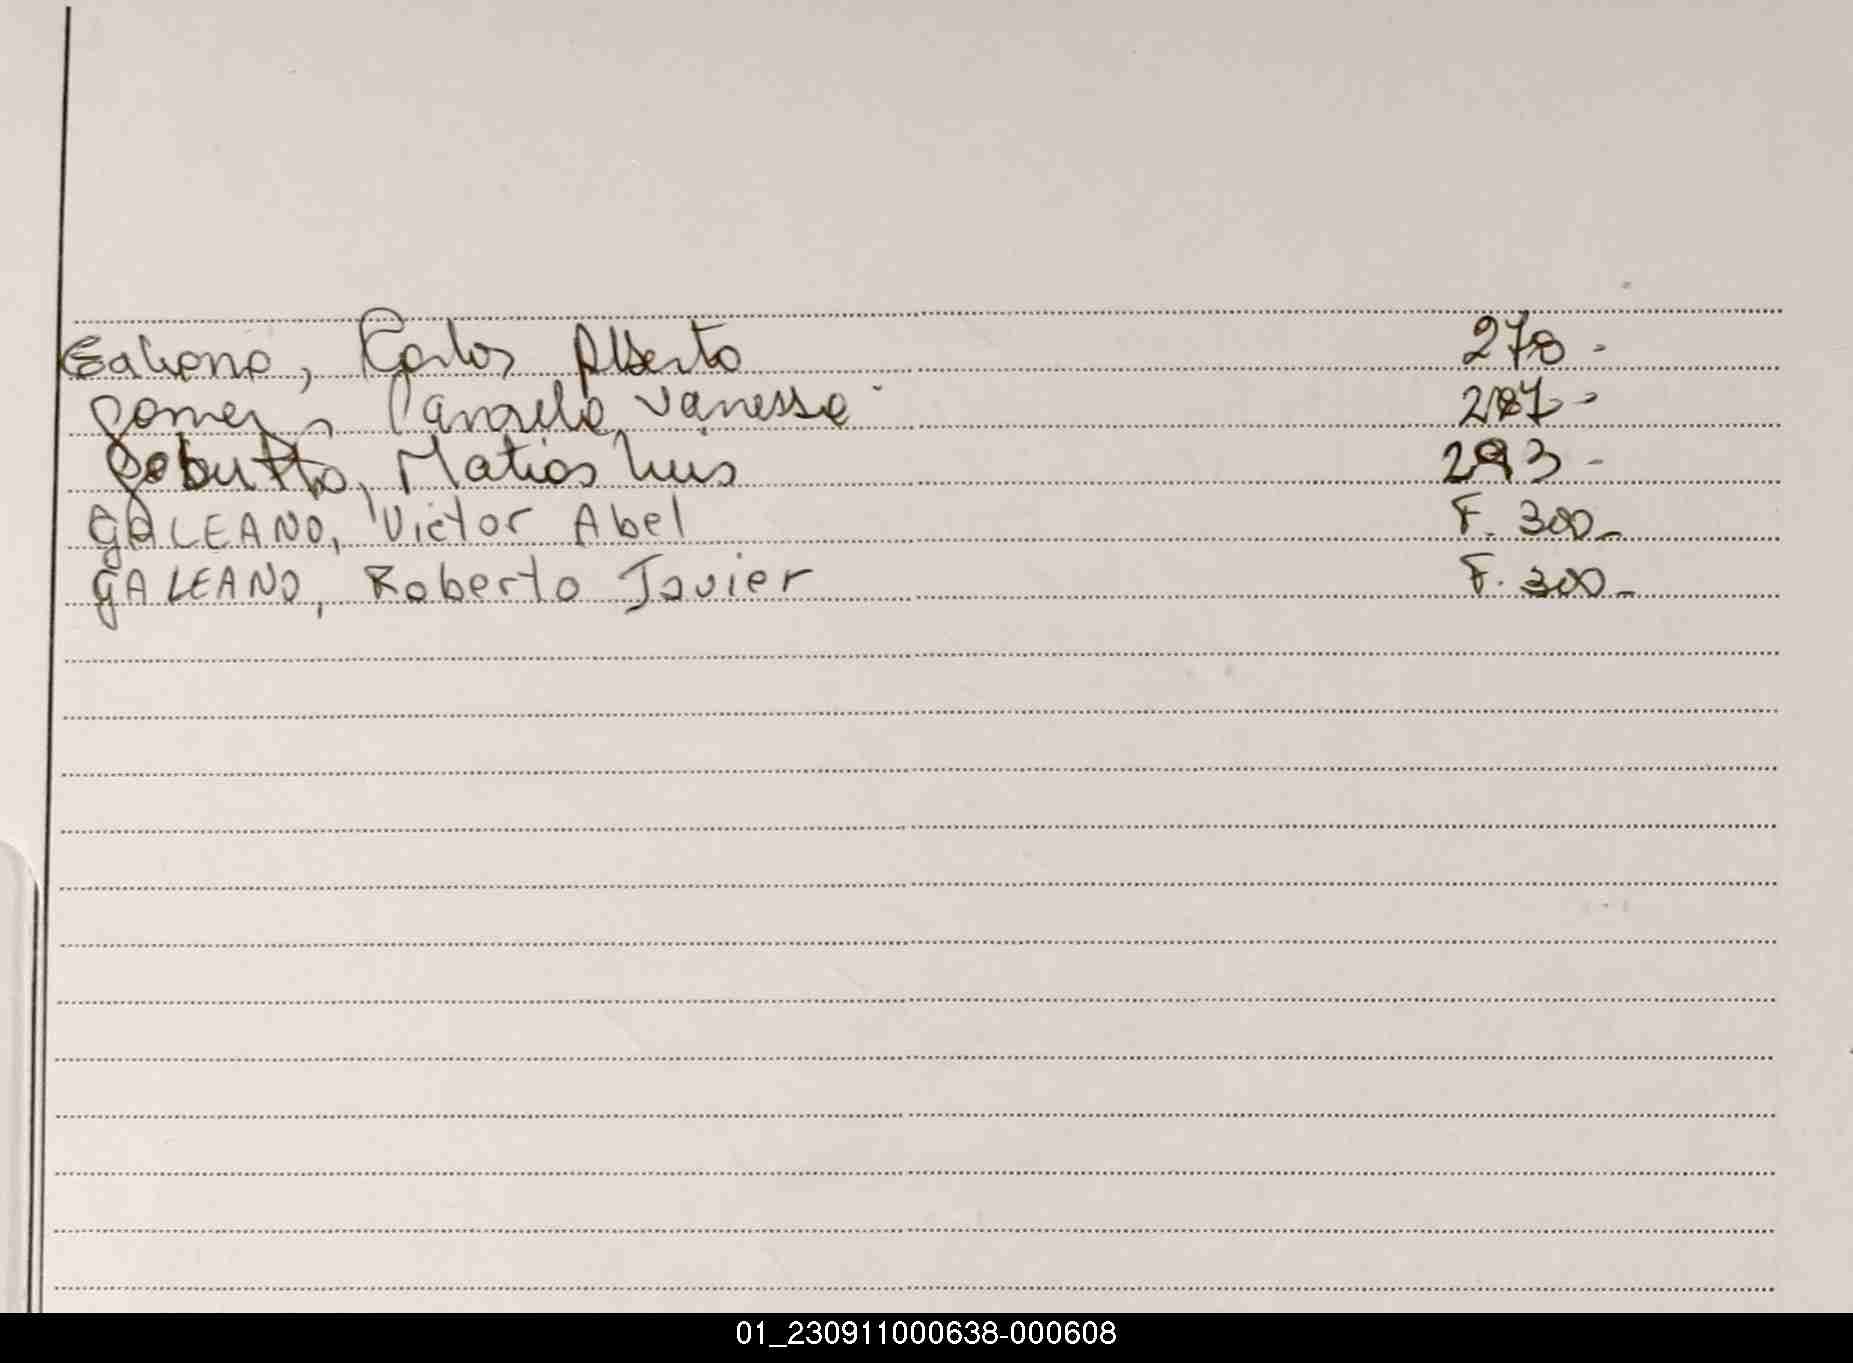 Galeano, Carlos Alberto 278-
Gomez, Pamela Vanessa 287-
Matias Luis 293-
GALEANO, Victor Abel F. 300-
GALEANO, Roberto Javier F. 300-
01_230911000638-000608